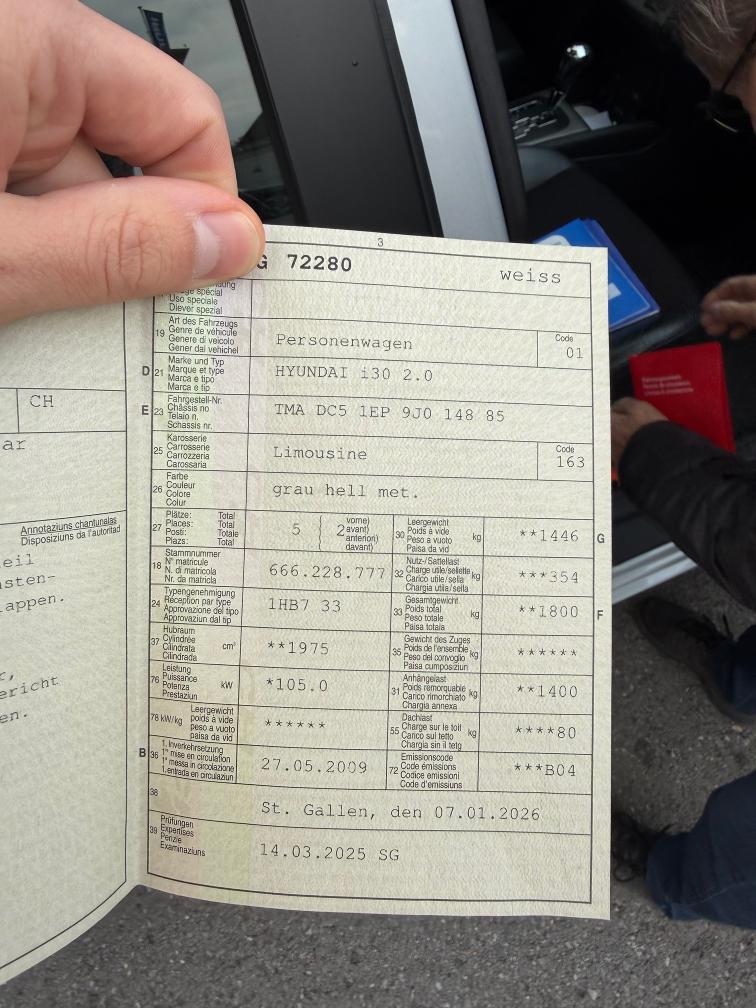 3
G 72280 weiss
Uso speciale
Diever spezial
19 Art des Fahrzeugs
Genre de véhicule
Genere di veicolo
Gener dal vehichel
Personenwagen
Code
01
D 21 Marke und Typ
Marque et type
Marca e tipo
Marca e tip
HYUNDAI i30 2.0
E 23 Fahrgestell-Nr.
Châssis no
Telaio n.
Schassis nr.
TMA DC5 1EP 9J0 148 85
25 Karosserie
Carrosserie
Carrozzeria
Carossaria
Limousine
Code
163
26 Farbe
Couleur
Colore
Colur
grau hell met.
27 Plätze: Total
Places: Total
Posti: Totale
Plazs: Total
5
2 vorne)
avant)
anteriori)
davant)
30 Leergewicht
Poids à vide
Peso a vuoto
Paisa da vid
kg
**1446
G
18 Stammnummer
N° matricule
N. di matricola
Nr. da matricla
666.228.777
32 Nutz-/Sattellast
Charge utile/sellette
Carico utile/sella
Chargia utila/sella
kg
***354
24 Typengenehmigung
Réception par type
Approvazione del tipo
Approvaziun dal tip
1HB7 33
33 Gesamtgewicht
Poids total
Peso totale
Paisa totala
kg
**1800
F
37 Hubraum
Cylindrée
Cilindrata
Cilindrada
cm³
**1975
35 Gewicht des Zuges
Poids de l'ensemble
Peso del convoglio
Paisa cumposiziun
kg
******
76 Leistung
Puissance
Potenza
Prestaziun
kW
*105.0
31 Anhängelast
Poids remorquable
Carico rimorchiato
Chargia annexa
kg
**1400
78 kW/kg
Leergewicht
poids à vide
peso a vuoto
paisa da vid
******
55 Dachlast
Charge sur le toit
Carico sul tetto
Chargia sin il tetg
kg
****80
B 36 1. Inverkehrsetzung
1re mise en circulation
1a messa in circolazione
1. entrada en circulaziun
27.05.2009
72 Emissionscode
Code émissions
Codice emissioni
Code d'emissiuns
***B04
38
St. Gallen, den 07.01.2026
39 Prüfungen
Expertises
Perizie
Examinaziuns
14.03.2025 SG
CH
ar
Annotaziuns chantunalas
Disposiziuns da l'autoritad
eil
sten-
appen.
ericht
en.